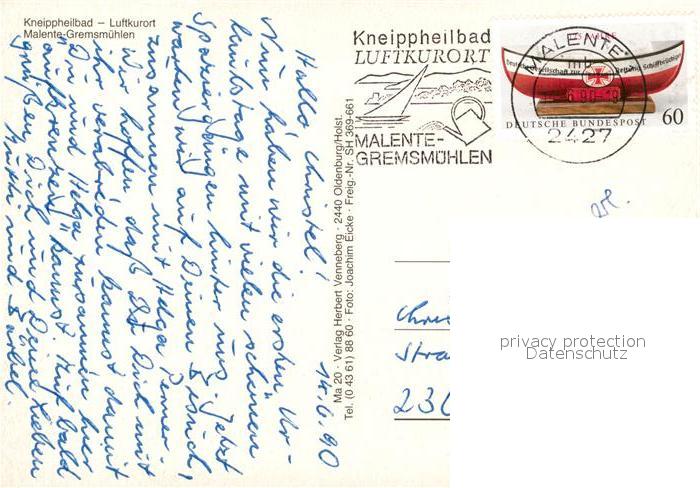 Kneippheilbad – Luftkurort
Malente-Gremsmühlen
14.6.90
Hallo Christel!
Nun haben wir die ersten Ur-
laubstage mit vielen schönen
Spaziergängen hinter uns. Jetzt
warten wir auf Deinen Besuch,
zusammen mit Helga Penner.
Wir hoffen, daß Du Dich mit
ihr verabreden kannst damit
Du und Helga zusammen hier
"aufkreuzen" kannst. Auf bald
grüßen Dich und Deine Lieben
Mutti und Bärbel.
Ma 20 · Verlag Herbert Venneberg · 2440 Oldenburg/Holst.
Tel. (0 43 61) 88 60 · Foto: Joachim Eicke · Freig.-Nr. SH 369-661
Kneippheilbad
LUFTKURORT
MALENTE-
GREMSMÜHLEN
MALENTE
mb
6.90-19
2427
125 JAHRE
Deutsche Gesellschaft zur Rettung Schiffbrüchiger
DEUTSCHE BUNDESPOST
60
Chri
Stra
230
privacy protection
Datenschutz